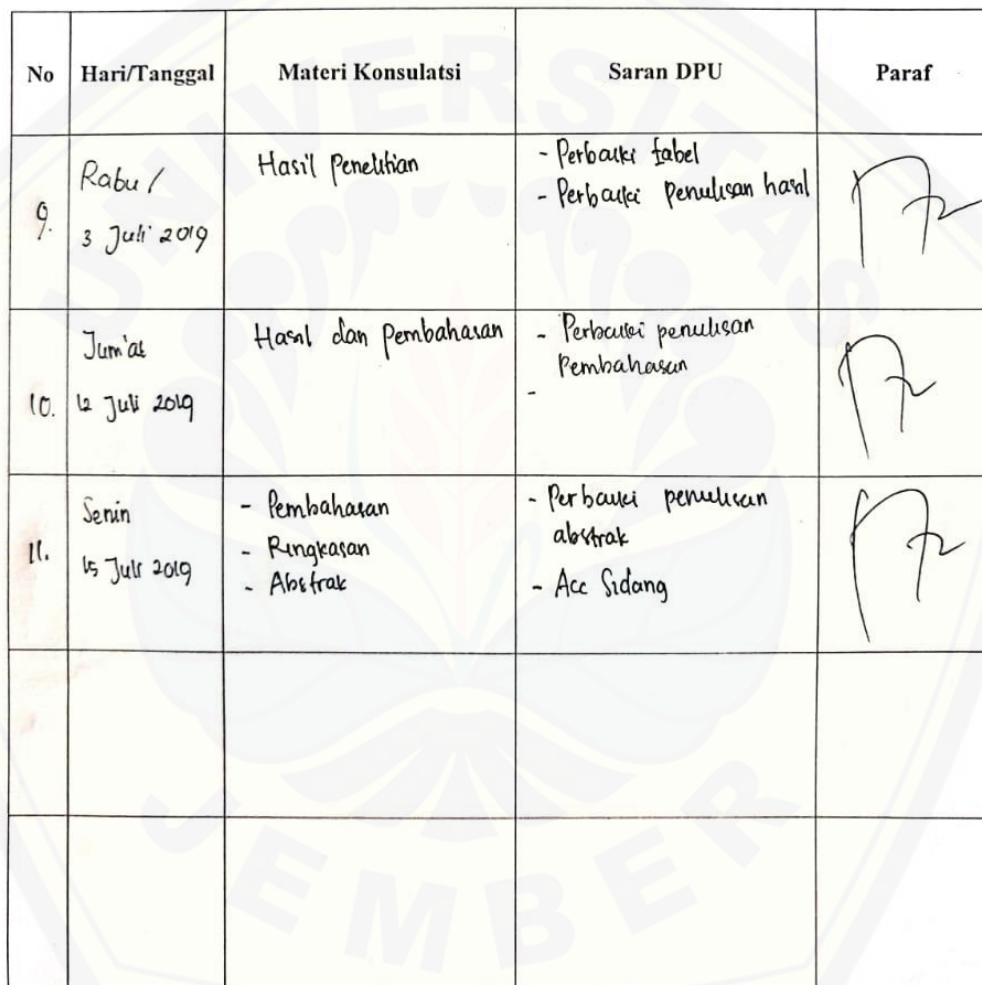 No Hari/Tanggal Materi Konsulatsi Saran DPU Paraf
9.
Rabu /
3 Juli 2019
Hasil Penelitian
- Perbaiki tabel
- Perbaiki penulisan hasil
10.
Jum'at
12 Juli 2019
Hasil dan Pembahasan
- Perbaiki penulisan
Pembahasan
-
11.
Senin
15 Juli 2019
- Pembahasan
- Ringkasan
- Abstrak
- Perbaiki penulisan
abstrak
- Acc Sidang
UNIVERSITAS
JEMBER